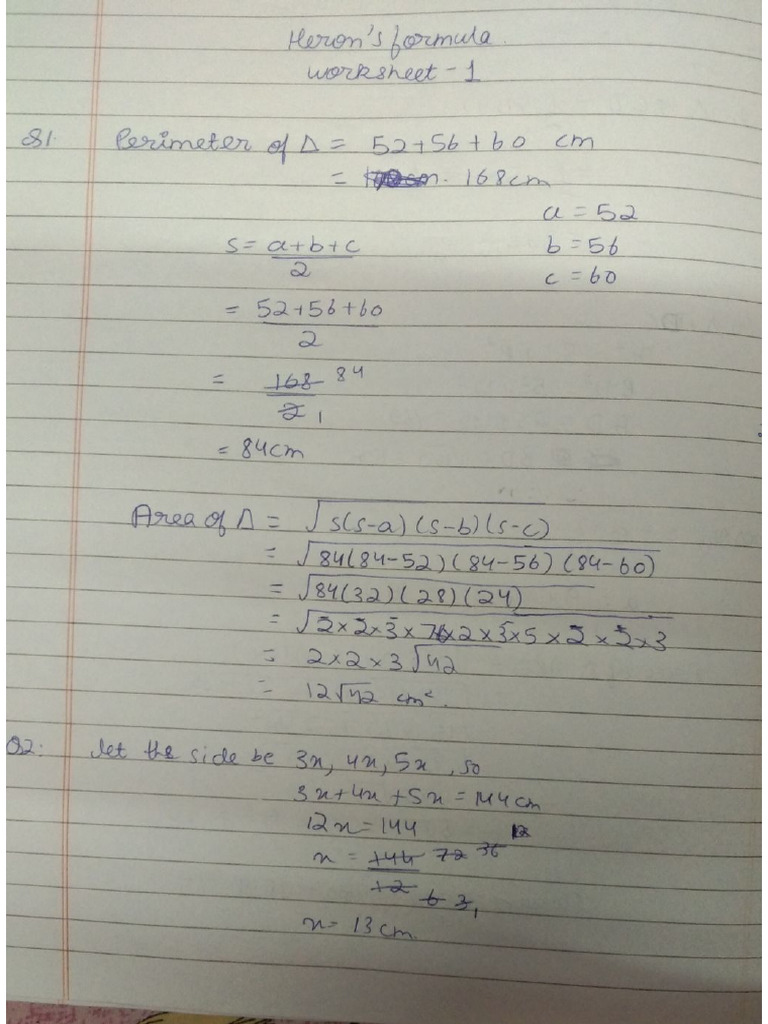 Heron's formula
worksheet - 1
Q1. Perimeter of Δ = 52+56+60 cm
= 168cm
a = 52
s = a+b+c / 2
b = 56
c = 60
= 52+56+60 / 2
= 168 84 / 2 1
= 84cm
Area of Δ = √s(s-a)(s-b)(s-c)
= √84(84-52)(84-56)(84-60)
= √84(32)(28)(24)
= √2×2×3×7×2×3×5×2×2×3
= 2×2×3√42
= 12√42 cm².
Q2. let the side be 3x, 4x, 5x, so
3x+4x+5x = 144cm
12x = 144
x = 144 72 36 12 / 12 6 3 1
x = 13cm.